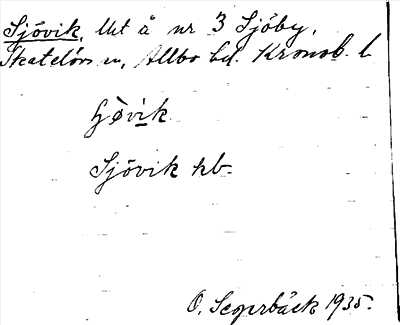 Sjövik, lht å nr 3 Sjöby,
Skatelövs sn, Allbo hd. Kronob. l
Sjövik hb.
O. Segerbäck 1935.